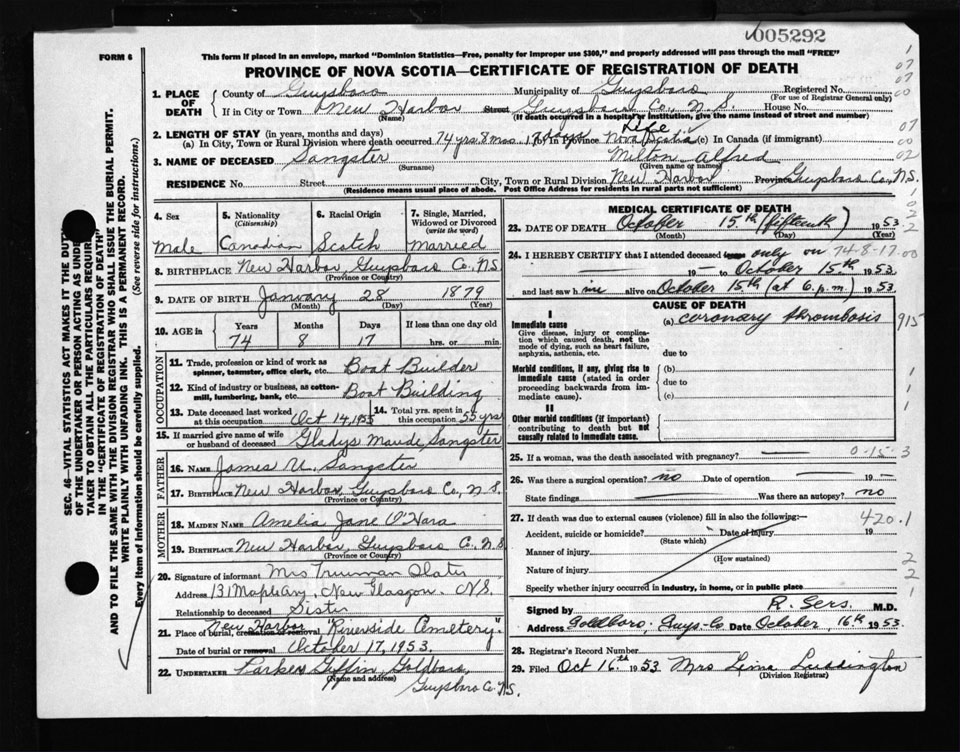 005292
FORM 6
This form if placed in an envelope, marked "Dominion Statistics—Free, penalty for improper use $300," and properly addressed will pass through the mail "FREE"
PROVINCE OF NOVA SCOTIA—CERTIFICATE OF REGISTRATION OF DEATH
1. PLACE OF DEATH County of Guysboro Municipality of Guysboro Registered No.
(For use of Registrar General only)
If in City or Town New Harbor Street Guysboro Co., N.S. House No.
(Name) (If death occurred in a hospital or institution, give its name instead of street and number)
2. LENGTH OF STAY (in years, months and days)
(a) In City, Town or Rural Division where death occurred 74 yrs. 8 mos. 17 days (b) In Province Nova Scotia Life (c) In Canada (if immigrant)
3. NAME OF DECEASED Sangster Milton Alfred
(Surname) (Given name or names)
RESIDENCE No. Street City, Town or Rural Division New Harbor Province Guysboro Co., N.S.
(Residence means usual place of abode. Post Office Address for residents in rural parts not sufficient)
SEC. 46—VITAL STATISTICS ACT MAKES IT THE DUTY
OF THE UNDERTAKER OR PERSON ACTING AS UNDER
TAKER TO OBTAIN ALL THE PARTICULARS REQUIRED
IN THE "CERTIFICATE OF REGISTRATION OF DEATH"
AND TO FILE THE SAME WITH THE DIVISION REGISTRAR WHO SHALL ISSUE THE BURIAL PERMIT.
WRITE PLAINLY WITH UNFADING INK. THIS IS A PERMANENT RECORD.
Every item of information should be carefully supplied. (See reverse side for instructions.)
4. Sex
Male
5. Nationality
(Citizenship)
Canadian
6. Racial Origin
Scotch
7. Single, Married, Widowed or Divorced
(write the word)
Married
8. BIRTHPLACE New Harbor, Guysboro Co., N.S.
(Province or Country)
9. DATE OF BIRTH January 28 1879
(Month) (Day) (Year)
10. AGE in Years Months Days If less than one day old
74 8 17 hrs. or min.
OCCUPATION
11. Trade, profession or kind of work as spinner, teamster, office clerk, etc. Boat Builder
12. Kind of industry or business, as cotton-mill, lumbering, bank, etc. Boat Building
13. Date deceased last worked at this occupation Oct 14, 1953
14. Total yrs. spent in this occupation 55 yrs
15. If married give name of wife or husband of deceased Gladys Maude Sangster
FATHER
16. NAME James U. Sangster
17. BIRTHPLACE New Harbor, Guysboro Co., N.S.
(Province or Country)
MOTHER
18. MAIDEN NAME Amelia Jane O'Hara
19. BIRTHPLACE New Harbor, Guysboro Co., N.S.
(Province or Country)
20. Signature of informant Mrs Truman Slater
Address 131 Maple Av., New Glasgow. N.S.
Relationship to deceased Sister
21. Place of burial, cremation or removal New Harbor "Riverside Cemetery."
Date of burial or removal October 17, 1953.
22. UNDERTAKER Parker Giffin, Goldboro,
(Name and address)
Guysboro Co. N.S.
MEDICAL CERTIFICATE OF DEATH
23. DATE OF DEATH October 15th (fifteenth) 1953
(Month) (Day) (Year)
24. I HEREBY CERTIFY that I attended deceased from only on 74-8-17
19 to October 15th 1953.
and last saw him alive on October 15th (at 6. p.m.) 1953.
CAUSE OF DEATH
I
Immediate cause
Give disease, injury or complication which caused death, not the mode of dying, such as heart failure, asphyxia, asthenia, etc.
(a) coronary thrombosis 915
due to
Morbid conditions, if any, giving rise to immediate cause (stated in order proceeding backwards from immediate cause).
(b)
due to
(c)
II
Other morbid conditions (if important) contributing to death but not causally related to immediate cause.
25. If a woman, was the death associated with pregnancy? 0-15-3
26. Was there a surgical operation? no Date of operation 19
State findings Was there an autopsy? no
27. If death was due to external causes (violence) fill in also the following:— 420.1
Accident, suicide or homicide? Date of injury 19
(State which)
Manner of injury
(How sustained)
Nature of injury
Specify whether injury occurred in industry, in home, or in public place
Signed by R. Sers. M.D.
Address Goldboro, Guys. Co Date October 16th 1953.
28. Registrar's Record Number
29. Filed Oct 16th 1953 Mrs Lena Luddington
(Division Registrar)